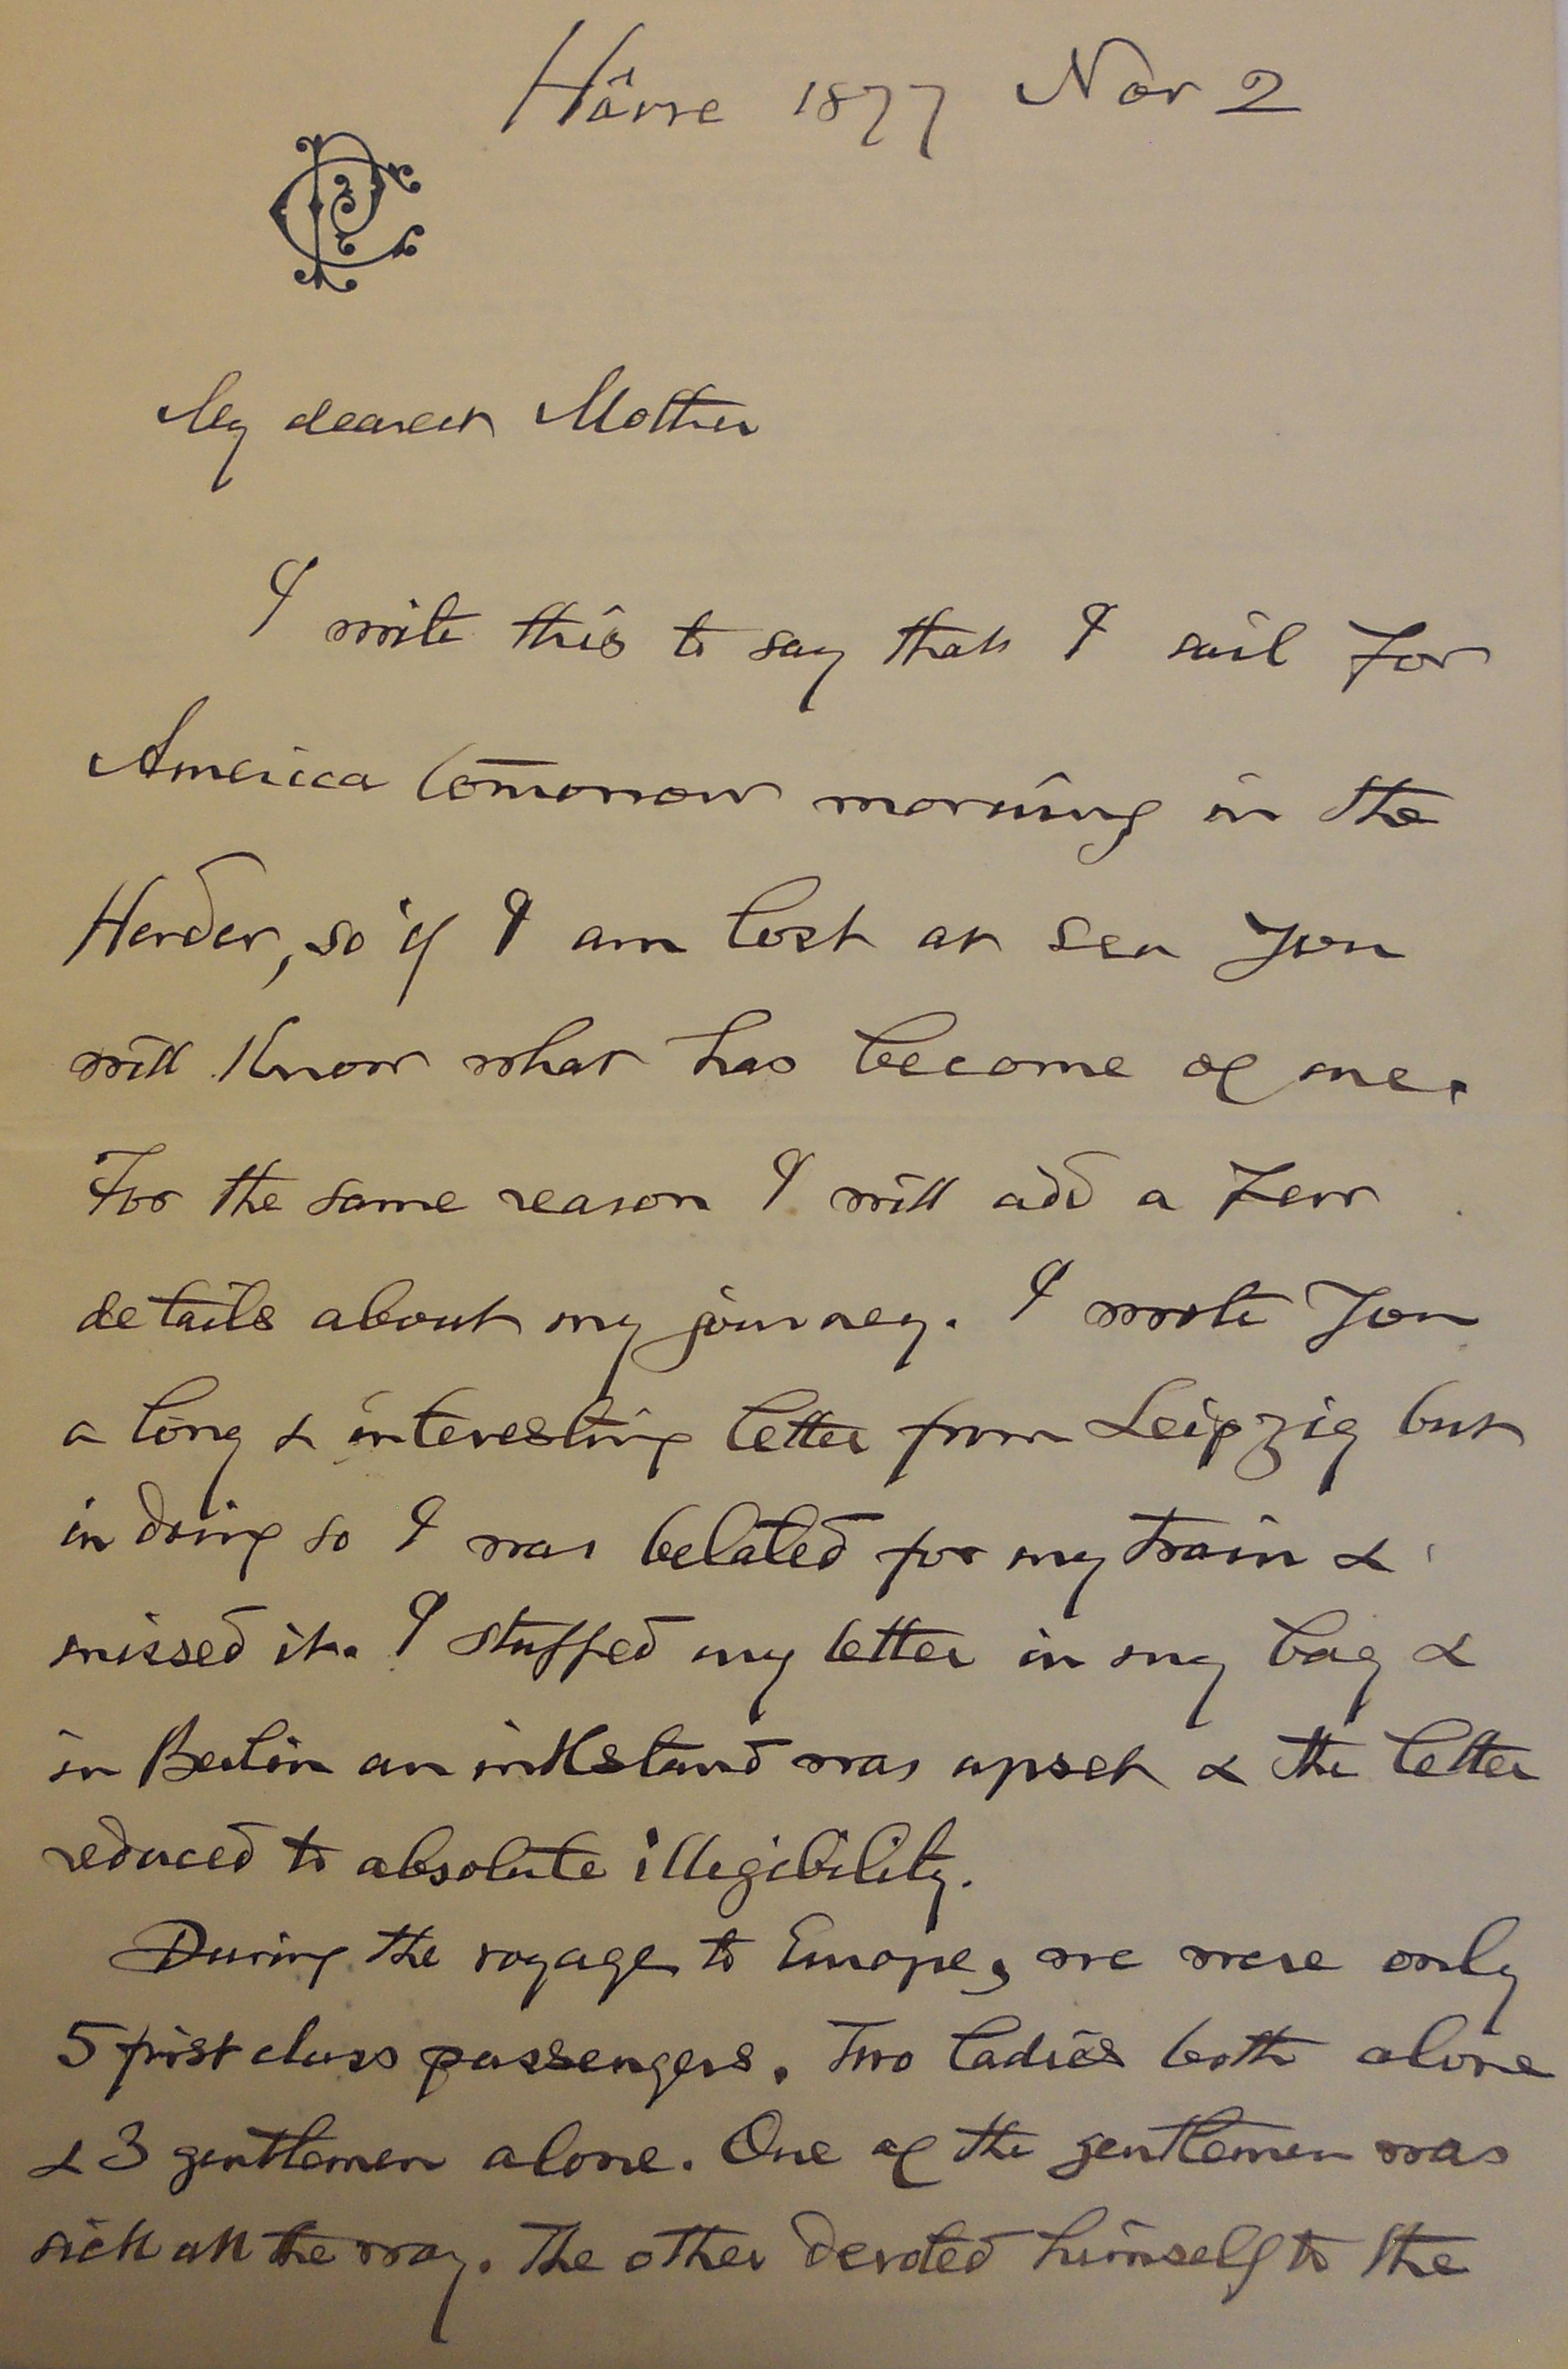 Hâvre 1877 Nov 2
CP
My dearest Mother
I write this to say that I sail for
America tomorrow morning in the
Herder, so if I am lost at sea you
will know what has become of me.
For the same reason I will add a few
details about my journey. I wrote you
a long & interesting letter from Leipzig but
in doing so I was belated for my train &
missed it. I stuffed my letter in my bag &
in Berlin an inkstand was upset & the letter
reduced to absolute illegibility.
During the voyage to Europe, we were only
5 first class passengers. Two ladies both alone
& 3 gentlemen alone. One of the gentlemen was
sick all the way. The other devoted himself to the